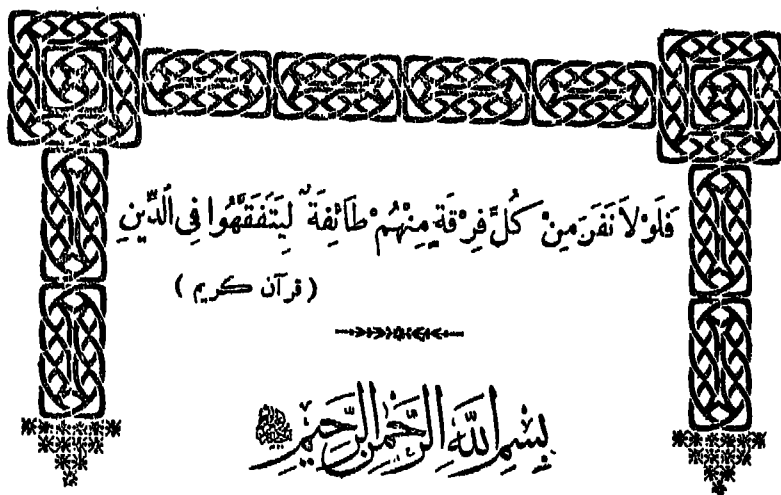 فَلَوْلَا نَفَرَ مِنْ كُلِّ فِرْقَةٍ مِنْهُمْ طَائِفَةٌ لِيَتَفَقَّهُوا فِي الدِّينِ
( قرآن كريم )
بِسْمِ اللَّهِ الرَّحْمَنِ الرَّحِيمِ